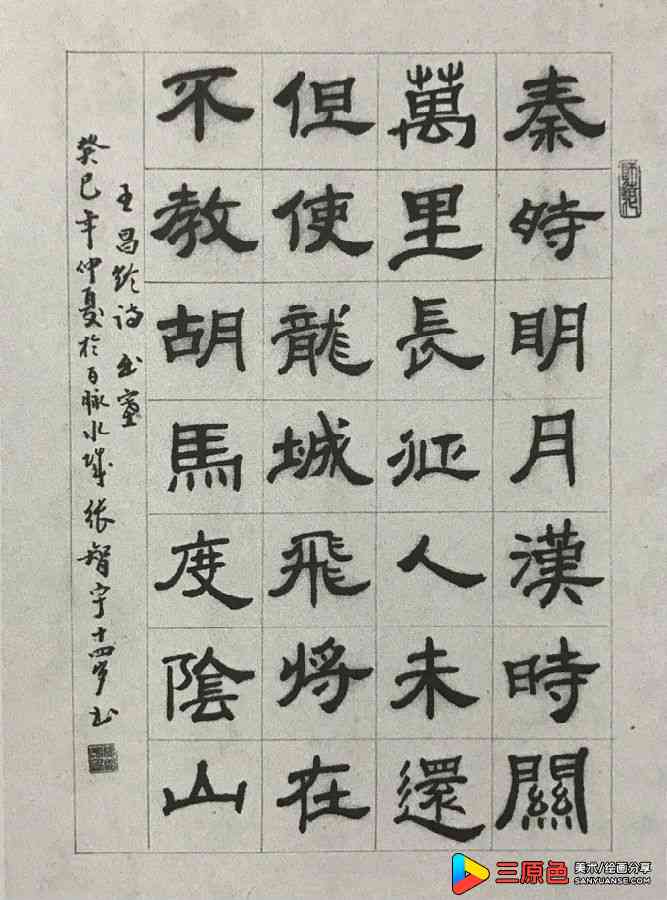 秦時明月漢時關
萬里長征人未還
但使龍城飛将在
不教胡馬度陰山
王昌龄诗出塞
癸巳年仲夏於百脉水城张智宇十四岁书
三原色
美术/绘画分享
SANYUANSE.COM